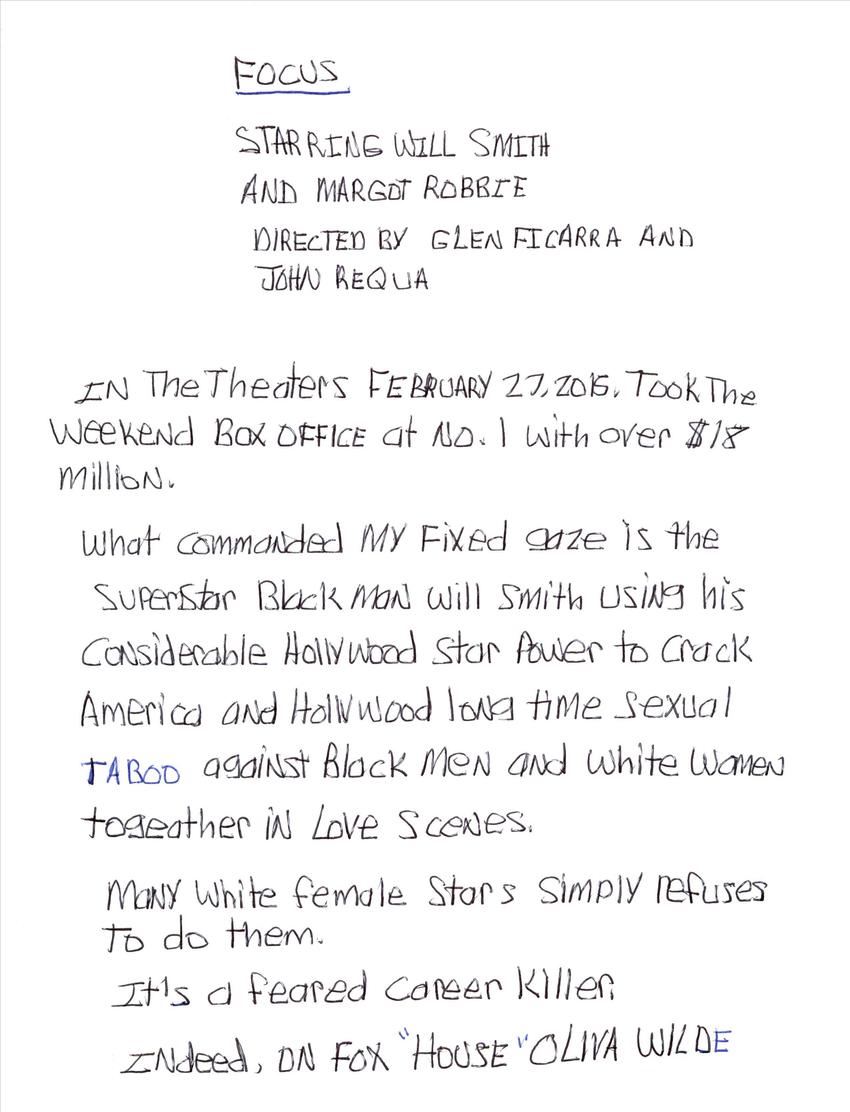 FOCUS
STARRING WILL SMITH
AND MARGOT ROBBIE
DIRECTED BY GLEN FICARRA AND
JOHN REQUA
IN The Theaters FEBRUARY 27, 2015. Took The
Weekend Box OFFICE at No. 1 with over $18
million.
What commanded My Fixed gaze is the
SuperStar Black Man Will Smith using his
Considerable Hollywood Star Power to Crack
America and Hollywood long time sexual
TABOO against Black Men and White Women
togeather in Love Scenes.
Many White female Stars Simply refuses
To do them.
It's a feared career killer.
Indeed, ON FOX "HOUSE" OLIVA WILDE